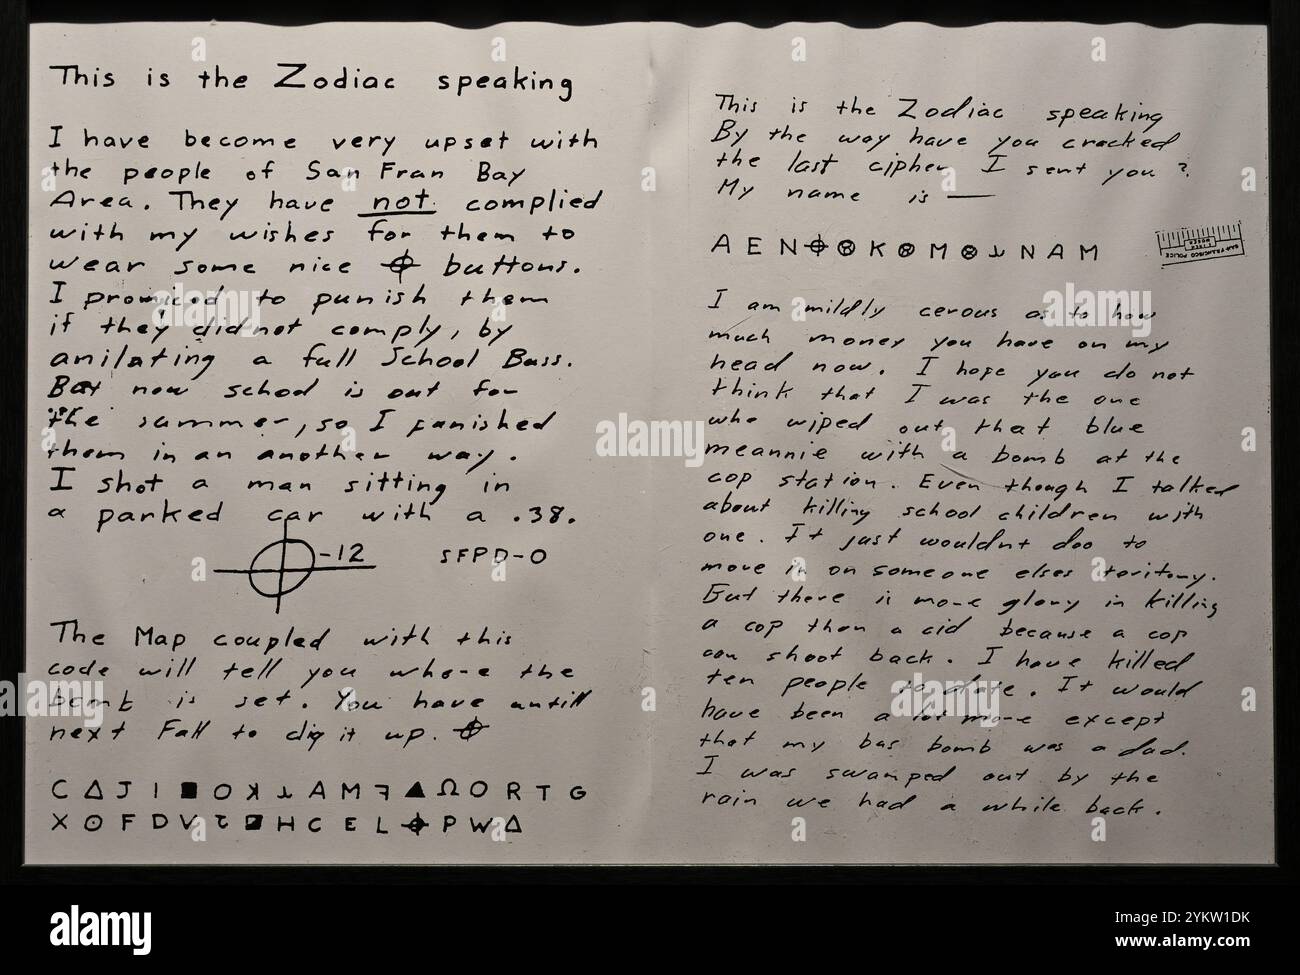 This is the Zodiac speaking
I have become very upset with
the people of San Fran Bay
Area. They have not complied
with my wishes for them to
wear some nice ⌖ buttons.
I promiced to punish them
if they did not comply, by
anilating a full School Buss.
But now school is out for
the summer, so I punished
them in an another way.
I shot a man sitting in
a parked car with a .38.
⌖-12 SFPD-0
The Map coupled with this
code will tell you where the
bomb is set. You have untill
next Fall to dig it up. ⌖
C Δ J I ■ O ꓘ ⅄ A M ꟻ ▲ Ω O R T G
X ⊙ F D V Ꞇ ◪ H C E L ⌖ P W Δ
This is the Zodiac speaking
By the way have you cracked
the last cipher I sent you?
My name is —
A E N ⌖ ⊗ K ⊗ M ⊗ ⅄ N A M
SAN FRANCISCO POLICE
I am mildly cerous as to how
much money you have on my
head now. I hope you do not
think that I was the one
who wiped out that blue
meannie with a bomb at the
cop station. Even though I talked
about killing school children with
one. It just wouldnt doo to
move in on someone elses teritory.
But there is more glory in killing
a cop than a cid because a cop
can shoot back. I have killed
ten people to date. It would
have been a lot more except
that my bus bomb was a dud.
I was swamped out by the
rain we had a while back.
alamy
alamy
Image ID: 2YKW1DK
www.alamy.com